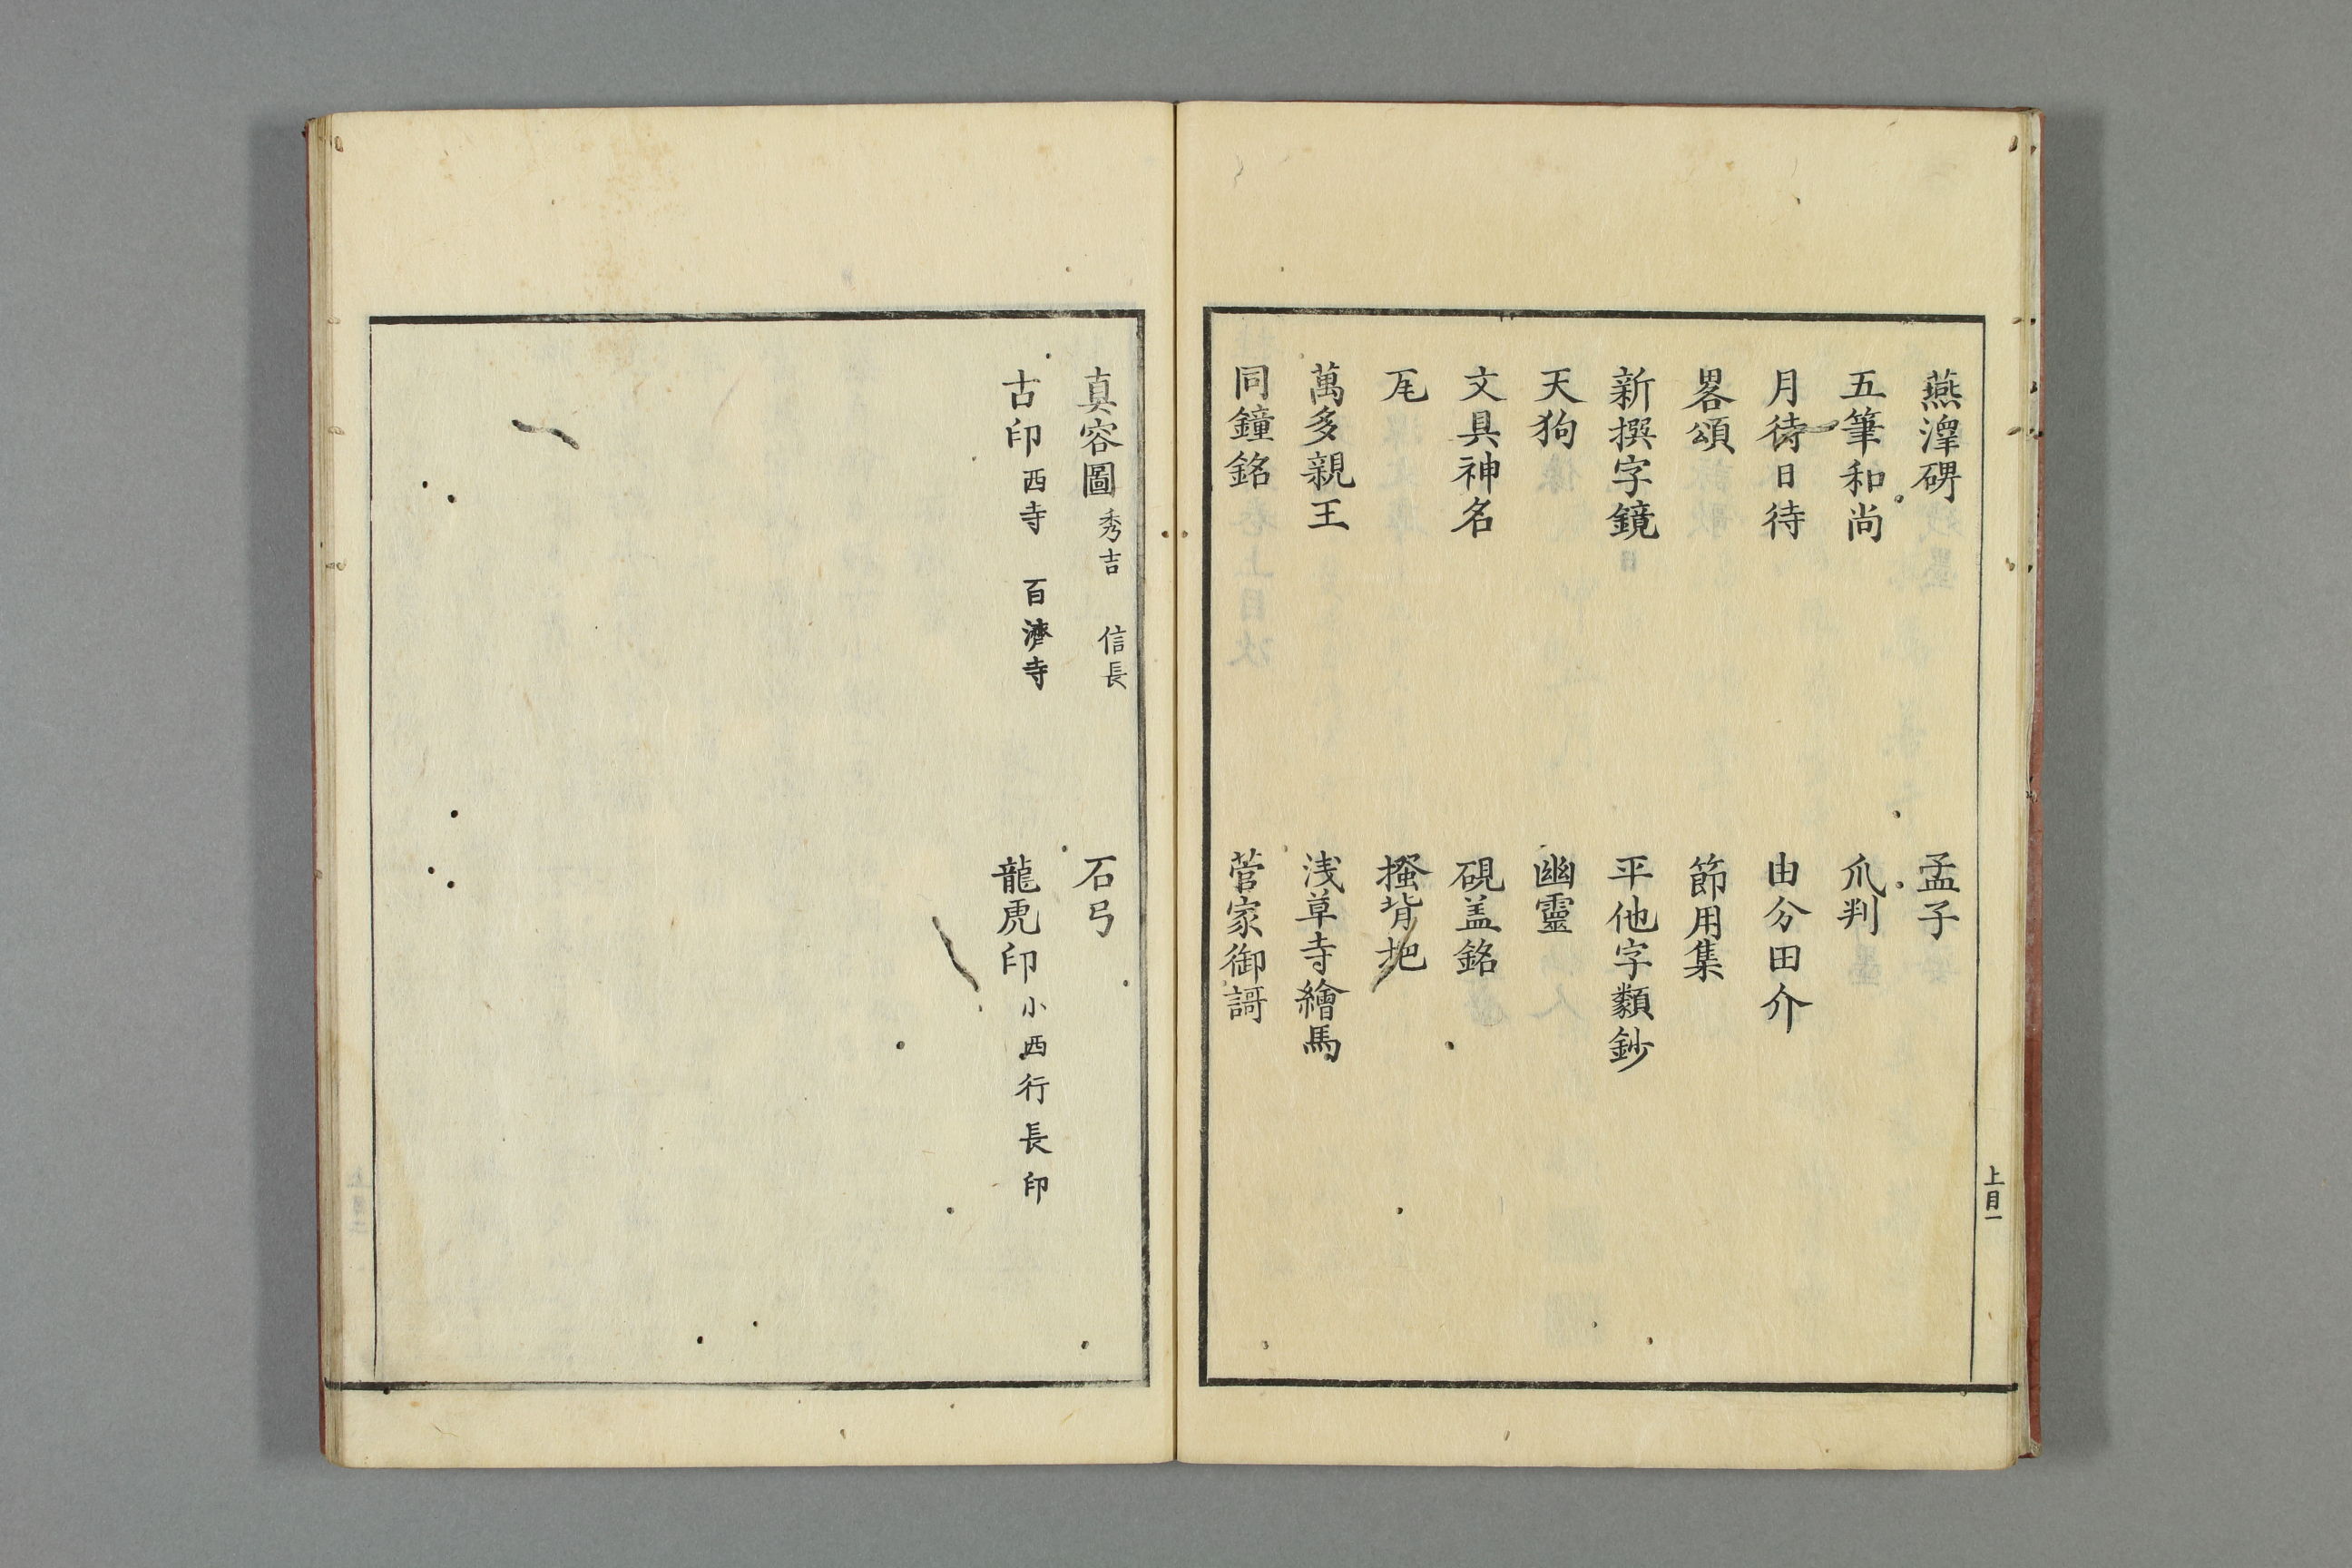 燕澤碑
孟子
五筆和尚
爪判
月待日待
由分田介
畧頌
節用集
新撰字鏡
平他字類鈔
天狗
幽靈
文具神名
硯盖銘
尾
搔背把
萬多親王
浅草寺繪馬
同鐘銘
菅家御謌
上目一
真容圖 秀吉 信長
石弓
古印 西寺 百濟寺
龍虎印 小西行長印